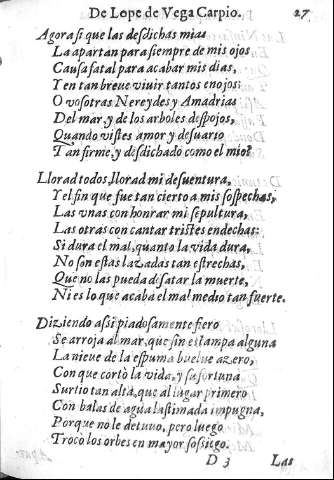 De Lope de Vega Carpio. 27
Agora si que las desdichas mias
La apartan para siempre de mis ojos
Causa fatal para acabar mis dias,
Y en tan breue viuir tantos enojos:
O vosotras Nereydes y Amadrias
Del mar, y de los arboles despojos,
Quando vistes amor y desuario
Tan firme, y desdichado como el mio?
Llorad todos, llorad mi desuentura,
Y el fin que fue tan cierto a mis sospechas,
Las vnas con honrar mi sepultura,
Las otras con cantar tristes endechas:
Si dura el mal, quanto la vida dura,
No son estas lazadas tan estrechas,
Que no las pueda desatar la muerte,
Ni es lo que acaba el mal medio tan fuerte.
Diziendo assi piadosamente fiero
Se arroja al mar, que sin estampa alguna
La nieue de la espuma buelue azero,
Con que cortò la vida, y su fortuna
Surtio tan alta, que al lugar primero
Con balas de agua lastimada impugna,
Porque no le detuuo, pero luego
Trocò los orbes en mayor sossiego.
D 3 Las